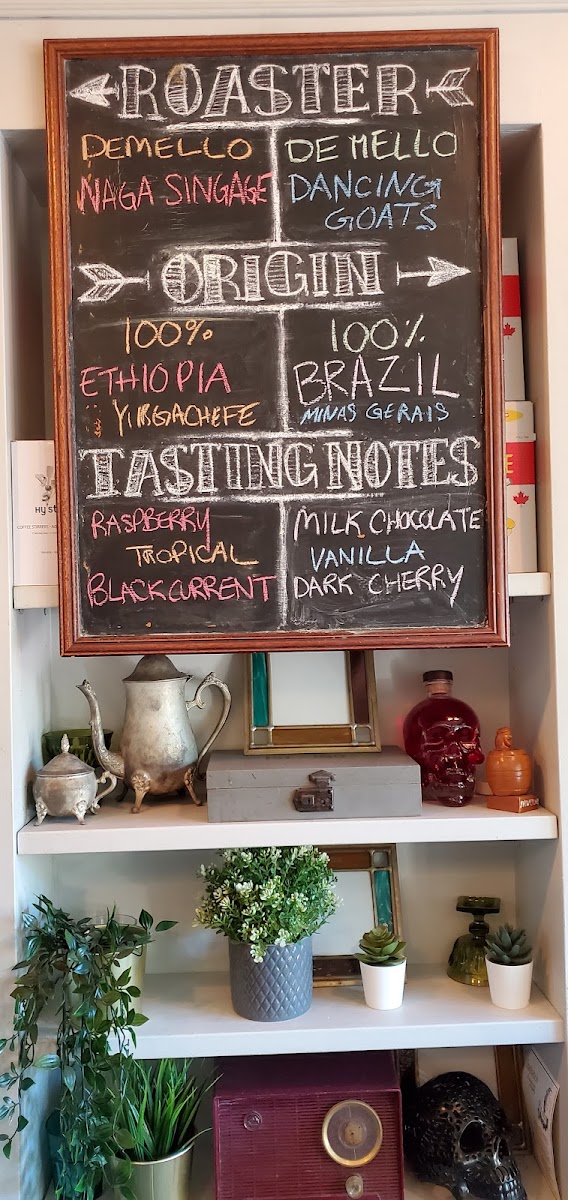 ROASTER
DEMELLO
NAGA SINGAGE
DE MELLO
DANCING
GOATS
ORIGIN
100%
ETHIOPIA
YIRGACHEFE
100%
BRAZIL
MINAS GERAIS
TASTING NOTES
RASPBERRY
TROPICAL
BLACKCURRENT
MILK CHOCOLATE
VANILLA
DARK CHERRY